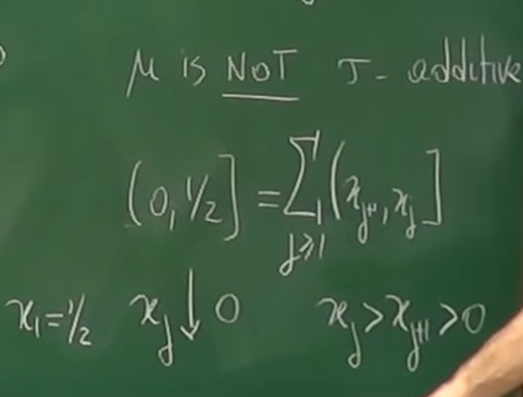 μ is NOT σ-additive
(0, 1/2] = ∑_{j≥1} (x_{j+1}, x_j]
x_1 = 1/2 x_j ↓ 0 x_j > x_{j+1} > 0